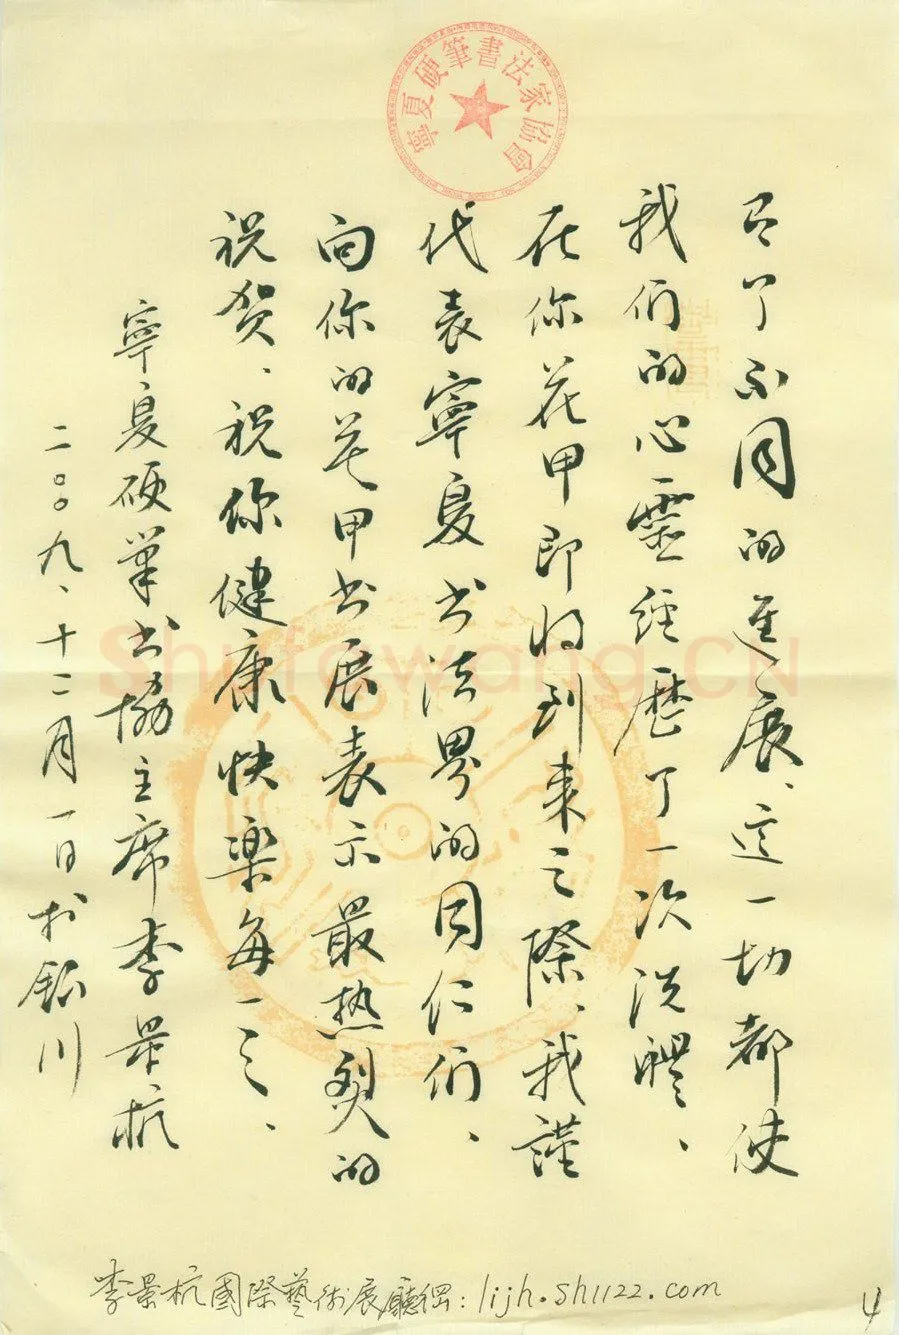 寧夏硬筆書法家協會
有了不同的進展、这一切都使
我们的心靈经歷了一次洗禮、
在你花甲即将到来之际、我謹
代表寧夏书法界的同仁们、
向你的花甲书展表示最热烈的
祝贺、祝你健康快樂每一天、
寧夏硬筆书協主席李景杭
二〇〇九、十二月一日於银川
Shufawang.CN
李景杭國際藝术展廳網：lijh.sh1122.com
4